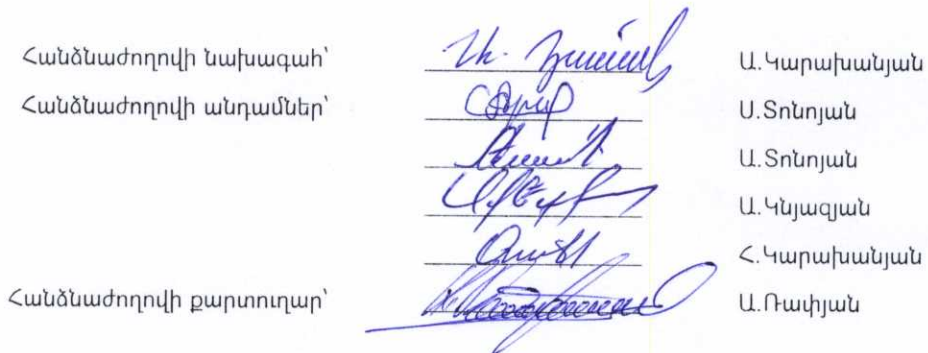 Հանձնաժողովի նախագահ՝ Ա.Կարախանյան
Հանձնաժողովի անդամներ՝ Ս.Տոնոյան
Ա.Տոնոյան
Ա.Կնյազյան
Հ.Կարախանյան
Հանձնաժողովի քարտուղար՝ Ա.Ռափյան